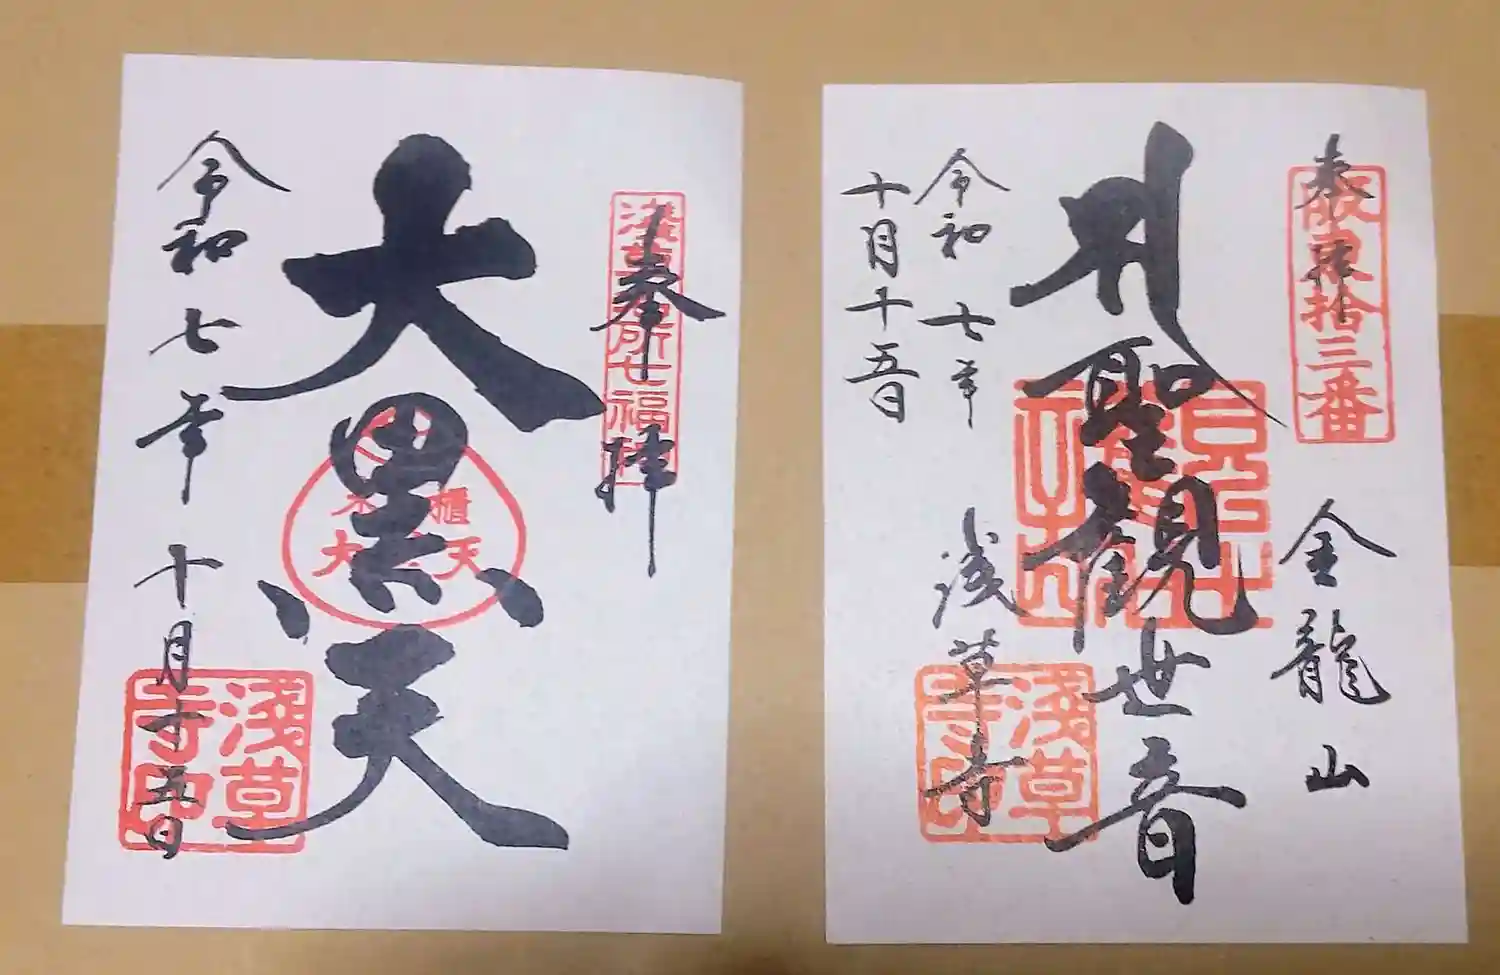 奉拝
坂東拾三番
金龍山
聖観世音
浅草寺
淺草寺印
令和七年
十月十五日
奉拝
浅草名所七福神
大黒天
米櫃
大黒天
令和七年十月十五日
淺草寺印